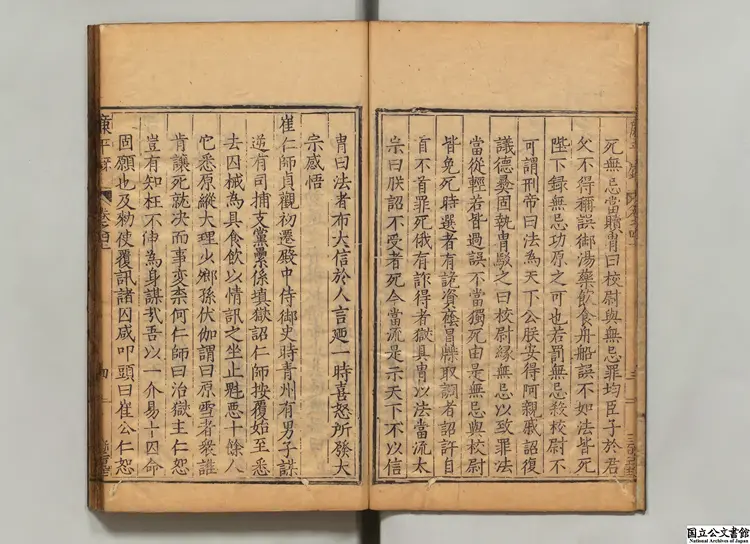 死無忌當贖胄曰校尉與無忌罪均臣子於君
父不得稱誤御湯藥飲食舟船誤不如法皆死
陛下録無忌功原之可也若罰無忌殺校尉不
可謂刑帝曰法為天下公朕安得阿親戚詔復
議德彛固執胄駮之曰校尉緣無忌以致罪法
當從輕若皆過誤不當獨死由是無忌與校尉
皆免死時選者有詭資蔭冒牒取調者詔許自
首不首罪死俄有詐得者獄具胄以法當流太
宗曰朕詔不受者死今當流是示天下不以信
胄曰法者布大信於人言廼一時喜怒所發大
宗感悟
崔仁師貞觀初遷殿中侍御史時青州有男子謀
逆有司捕支黨纍係填獄詔仁師按覆始至悉
去囚械為具食飲以情訊之坐止魁惡十餘人
它悉原縱大理少卿孫伏伽謂曰原雪者衆誰
肯讓死就決而事変奈何仁師曰治獄主仁恕
豈有知枉不伸為身謀哉吾以一介易十囚命
固願也及勑使覆訊諸囚咸叩頭曰崔公仁恕
四
国立公文書館
National Archives of Japan